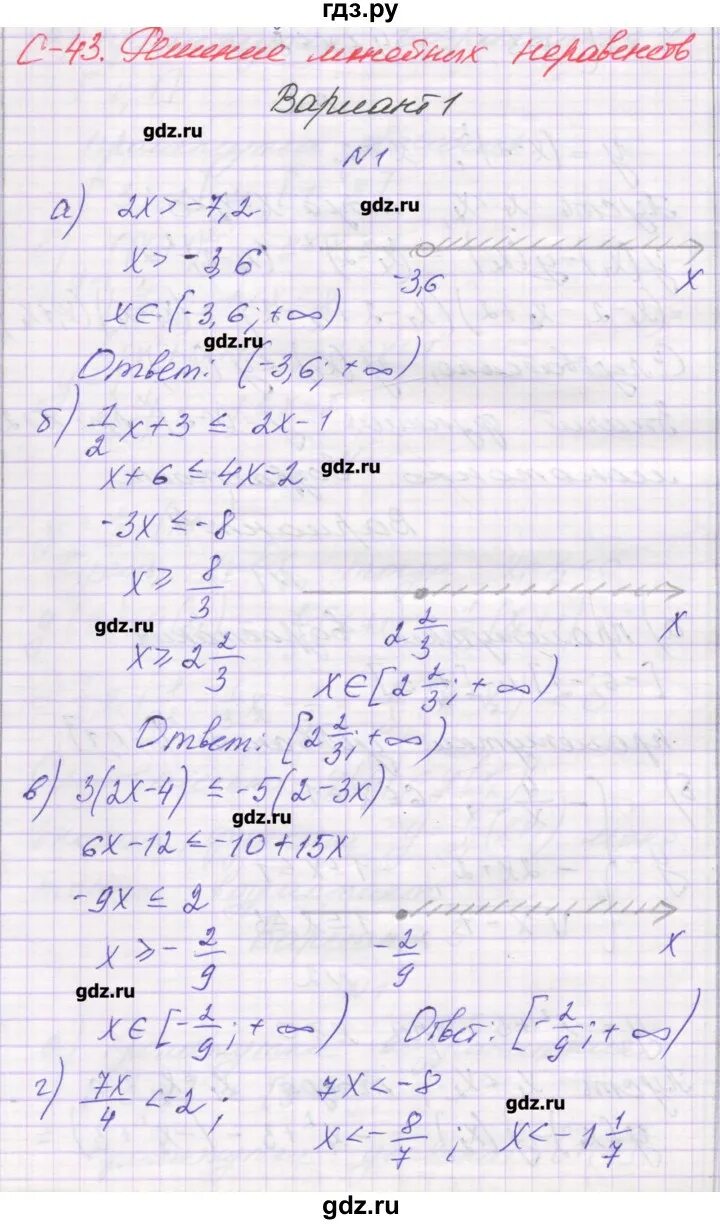 гдз.ру
С-43. Решение линейных неравенств
Вариант 1
gdz.ru
N1
а) 2x > -7,2
gdz.ru
x > -3,6
-3,6 x
x ∈ (-3,6; +∞)
gdz.ru
Ответ: (-3,6; +∞)
б) 1/2 x + 3 ≤ 2x - 1
x + 6 ≤ 4x - 2
gdz.ru
-3x ≤ -8
x ≥ 8/3
gdz.ru
2 2/3 x
x ≥ 2 2/3
x ∈ [2 2/3; +∞)
Ответ: [2 2/3; +∞)
в) 3(2x-4) ≤ -5(2-3x)
gdz.ru
6x - 12 ≤ -10 + 15x
-9x ≤ 2
x ≥ -2/9
-2/9 x
gdz.ru
x ∈ [-2/9; +∞) Ответ: [-2/9; +∞)
г) 7x/4 < -2; 7x < -8
gdz.ru
x < -8/7; x < -1 1/7
gdz.ru